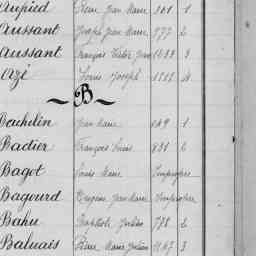 Aupied Pierre Jean Marie 361 1
Aussant Joseph Jean Marie 777 2
Aussant François Victor Jean 1233 3
Azé Louis Joseph 4
~ B ~
Bachelin Jean Marie 2
Badier François Louis 831 2
Bagot Louis Marie Impropre
Bagourd Eugène Jean Marie Impropre
Bahu Baptiste Julien 738 2
Baluais Pierre Marie Julien 1167 3